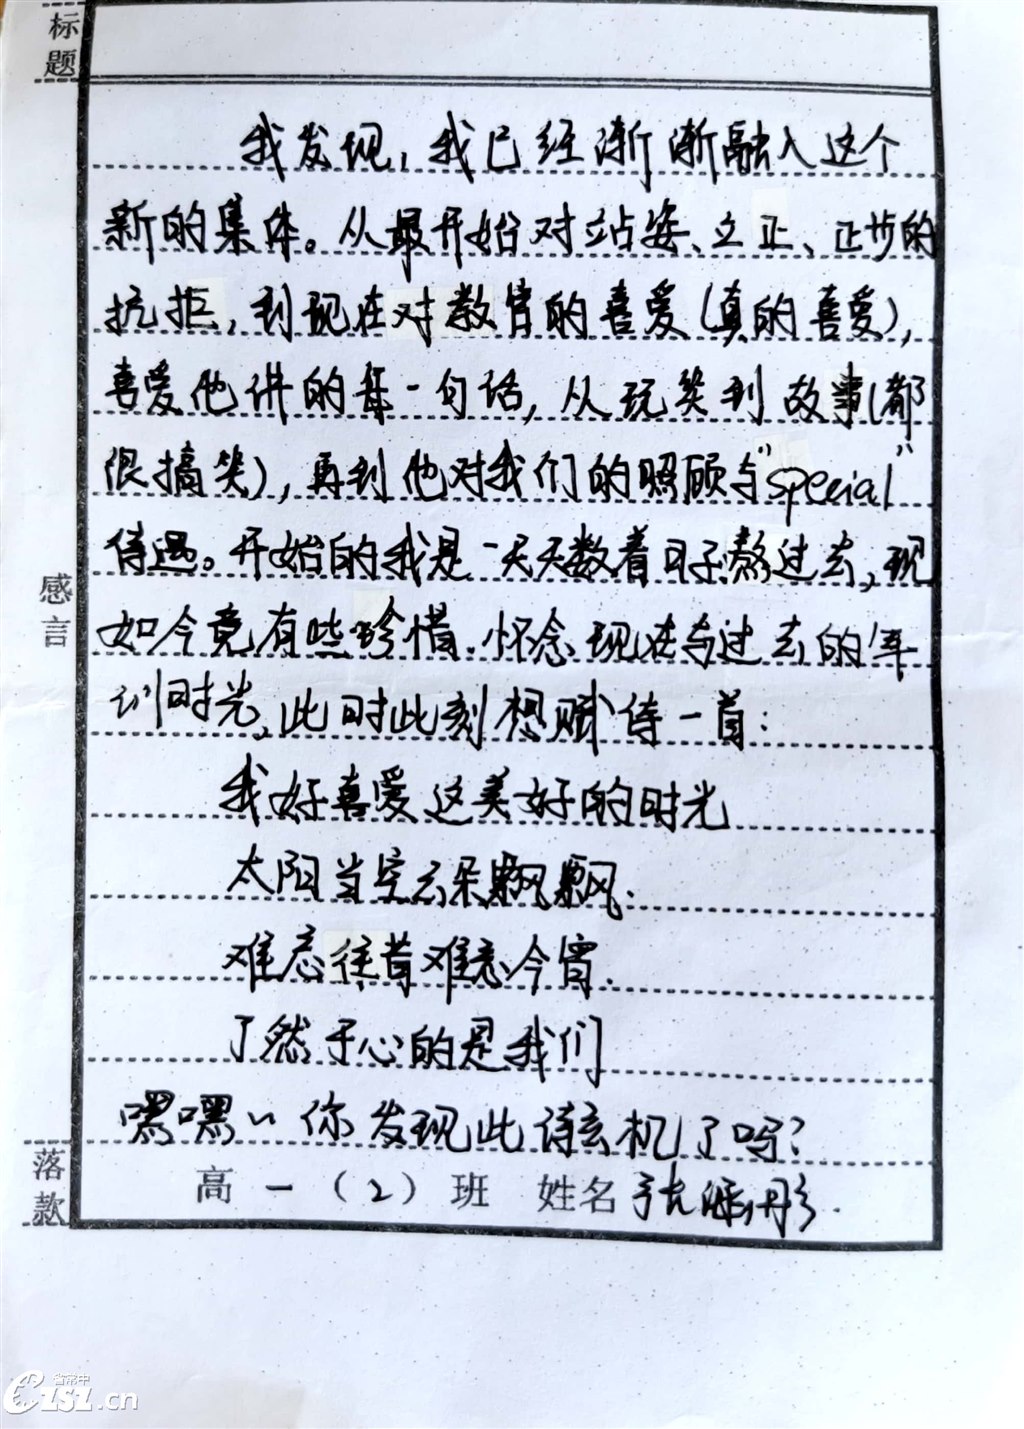 标题
我发现，我已经渐渐融入这个
新的集体。从最开始对站姿、立正、正步的
抗拒，到现在对教官的喜爱(真的喜爱)，
喜爱他讲的每一句话，从玩笑到故事(都
很搞笑)，再到他对我们的照顾与"special"
待遇。开始的我是一天天数着日子熬过去，现
如今竟有些珍惜.怀念现在与过去的军
训时光，此时此刻想赋诗一首：
我好喜爱这美好的时光
太阳当空云朵飘飘.
难忘往昔难忘今宵.
了然于心的是我们
嘿嘿~你发现此诗玄机了吗?
感言
落款
高一(2)班 姓名 张 彤.
省常中
CZSZ.cn